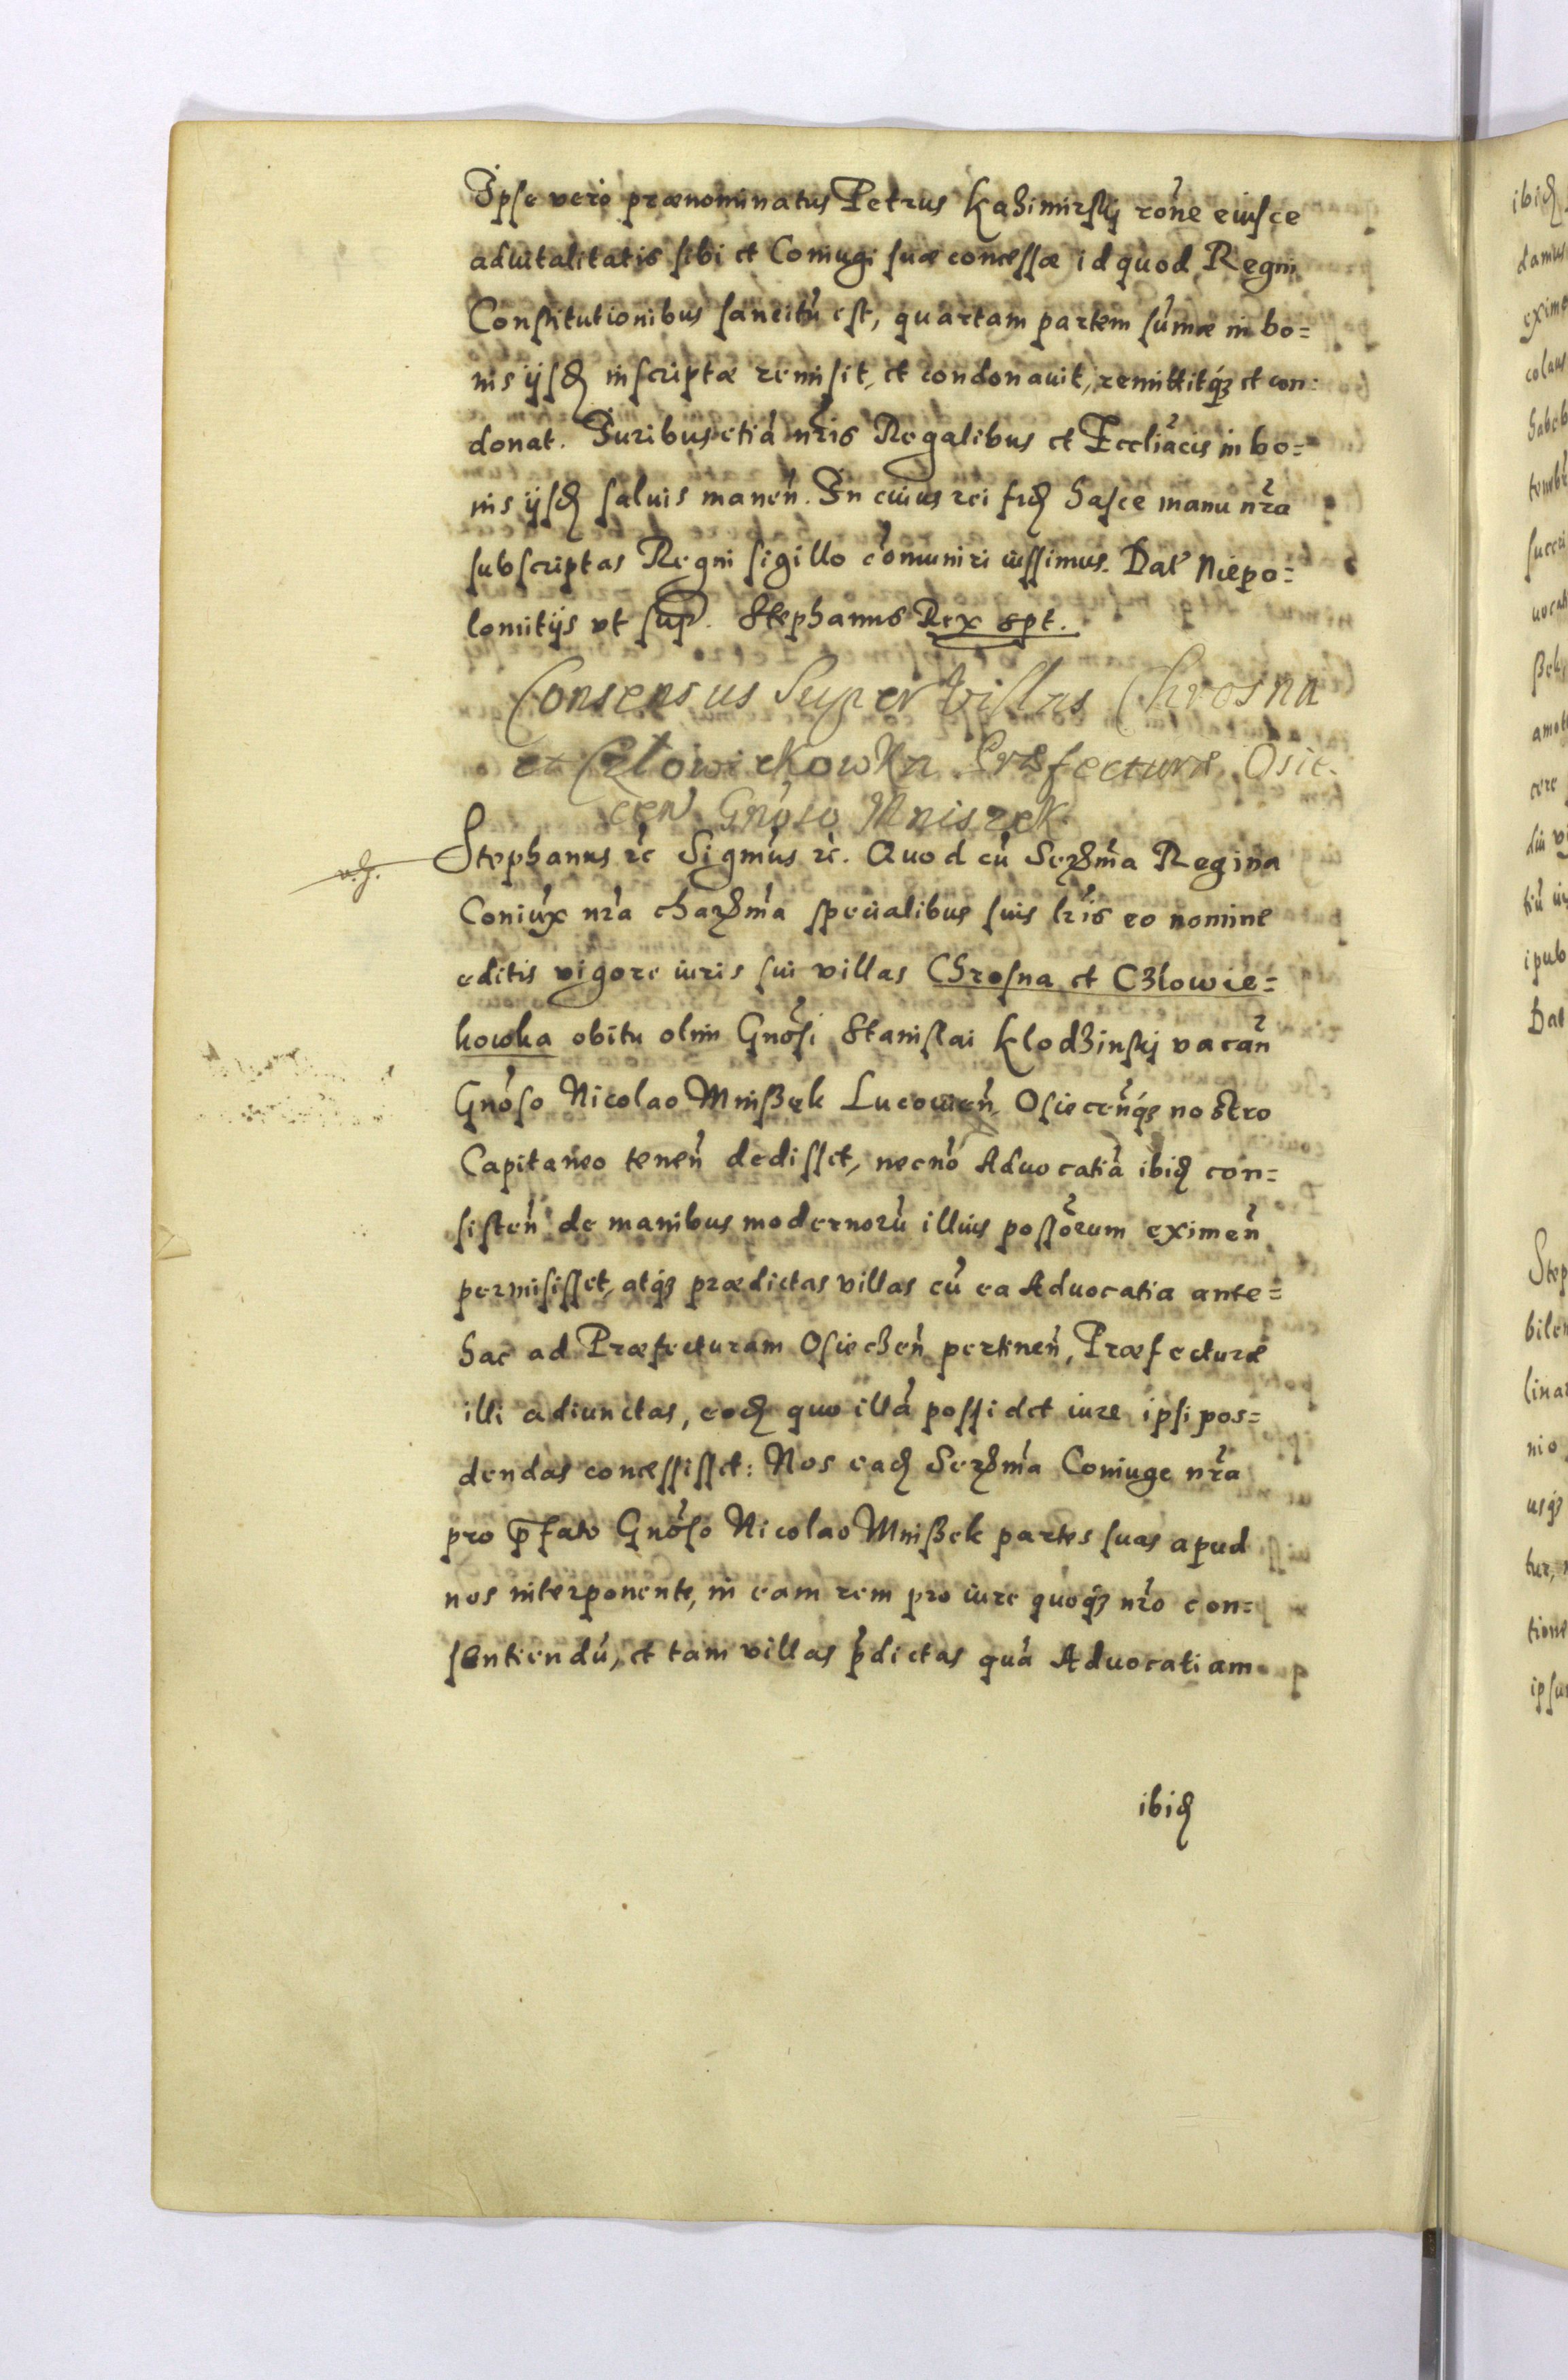 Ipse vero prænominatus Petrus Kazimirskij rōne eiusce
aduitalitatis sibi et Coniugi suæ concessæ id quod Regni
Constitutionibus sancitū est, quartam partem sūmæ in bo=
nis ijsd inscriptæ remisit, et condonauit, remittitqȝ et con=
donat. Iuribus etiā nr̄is Regalibus et Eccliācis in bo=
nis ijsd saluis manen̄. In cuius rei fid hasce manu nr̄a
subscriptas Regni sigillo cōmuniri iussimus. Dat Niepo=
lomitijs vt sup. Stephanus Rex spt.
Consensus Super Villas Chrosna
et Człowiekowka Præfecturæ Osie-
cen Gnoso Mniszek
Stephanus rc Sigmūs rc. Quod cū Serzmā Regina
Coniux nr̄a charzmā specialibus suis lr̄is eo nomine
editis vigore iuris sui villas Chrosna et Czlowie=
kowka obitu olim Gnōsi Stanislai Klodzinskj vacan̄
Gnōso Nicolao Mnißek Lucouien̄ Osiecen̄qȝ nostro
Capitaneo tenen̄ dedisset, necnō Aduocatiā ibid con=
sisten̄ de manibus modernorū illius possōrum eximen̄
permisisset, atqȝ prædictas villas cū ea Aduocatia ante=
hac ad Præfecturam Osieczen̄ pertinen̄, Præfecturæ
illi adiunctas, eod quo illā possidet iure ipsi pos=
dendas concessisset: Nos ead Serzmā Coniuge nr̄a
pro p̄fato Gnōso Nicolao Mnißek partes suas apud
nos interponente, in eam rem pro iure quoqȝ nr̄o con=
sentiendū, et tam villas p̄dictas quā Aduocatiam
ibid